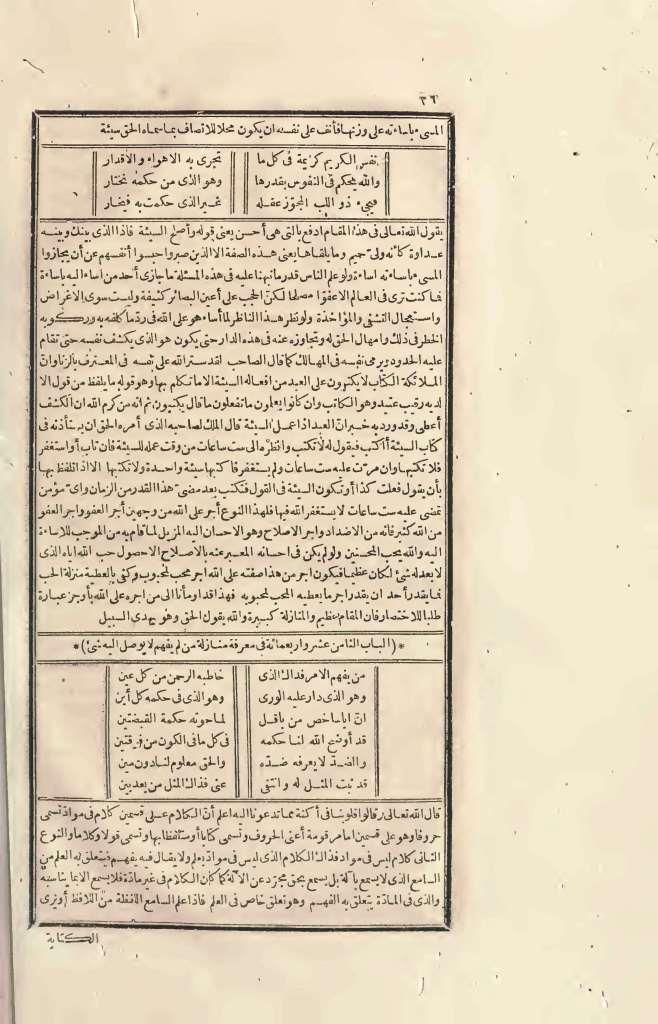 ٣٦
المسىء باساءته على وزنها فأنف على نفسه ان يكون محلا للاتصاف بما سماه الحق سيئة
نفس الكريم كريمة فى كل ما تجرى به الاهواء والاقدار
والله يحكم فى النفوس بقدرها وهو الذى من حكمه نختار
فيجىء ذو اللب المجوّز عقله غير الذى حكمت به فيضار
يقول الله تعالى فى هذا المقام ادفع بالتى هى أحسن يعنى قوله وأصلح السيئة فاذا الذى بينك وبينه
عداوة كأنه ولىّ حميم وما يلقاها يعنى هذه الصفة الا الذين صبروا حبسوا أنفسهم عن أن يجازوا
المسىء باساءته اساءة ولو علم الناس قدر ما نبهنا عليه فى هذه المسئلة ما جازى أحد من اساء اليه باساءة
فما كنت ترى فى العالم الا عفوّا مصلحا لكنّ الحجب على أعين البصائر كثيفة وليست سوى الاغراض
واستعجال التشفى والمؤاخذة ولو نظر هذا الناظر لما أساء هو على الله فى ردّ ما كلفه به وركوبه
الخطر فى ذلك وامهال الحق له وتجاوزه عنه فى هذه الدار حتى يكون هو الذى يكشف نفسه حتى تقام
عليه الحدود ويرمى نفسه فى المهالك كما قال الصاحب لقد ستر الله على نفسه فى المعترف بالزنا وانّ
الملائكة الكتاب لا يكتبون على العبد من افعاله السيئة الا ما تكلم بها وهو قوله ما يلفظ من قول الا
لديه رقيب عتيد وهو الكاتب وان كانوا يعلمون ما تفعلون ما قال يكتبون ثم انه من كرم الله ان الكشف
أعطى وقد ورد به خبر انّ العبد اذا عمل السيئة قال الملك لصاحبه الذى أمره الحق ان يستأذنه فى
كتاب السيئة أأكتب فيقول له لا تكتب وانظره الى ست ساعات من وقت عمله للسيئة فان تاب أو استغفر
فلا تكتبها وان مرّت عليه ست ساعات ولم يستغفر فاكتبها سيئة واحدة ولا تكتبها الا اذا تلفظ بها
بأن يقول فعلت كذا أو تكون السيئة فى القول فتكتب بعد مضىّ هذا القدر من الزمان واىّ مؤمن
تمضى عليه ست ساعات لا يستغفر الله فيها فلهذا النوع أجر على الله من وجهين أجر العفو واجر العفو
من الله كثير فانه من الاضداد واجر الاصلاح وهو الاحسان اليه المزيل لما قام به من الموجب للاساءة
اليه والله يحب المحسنين ولو لم يكن فى احسانه المعبر عنه بالاصلاح الا حصول حب الله اياه الذى
لا يعدله شئ لكان عظيما فيكون اجر من هذا صفته على الله اجر محب لمحبوب وكفى بالعطية منزلة الحب
فما يقدر أحد ان يقدر اجر ما يعطيه المحب لمحبوبه فهذا قد اومأنا الى من اجره على الله بأوجز عبارة
طلبا للاختصار فان المقام عظيم والمنازلة كبيرة والله يقول الحق وهو يهدى السبيل
*(الباب الثامن عشر واربعمائة فى معرفة منازلة من لم يفهم لا يوصل اليه شئ)*
من يفهم الامر فذاك الذى خاطبه الرحمن من كل عين
وهو الذى دار عليه الورى وهو الذى فى حكمه كل أين
انّ اياسا خص من باقل لما حوته حكمة القبضتين
قد أوضح الله لنا حكمه فى كل ما فى الكون من فرقتين
والضدّ لا يعرفه ضدّه والحق معلوم لنا دون مين
قد ثبت المثل له وانتفى عنى فذاك المثل من بعد بين
قال الله تعالى وقالوا قلوبنا فى أكنة مما تدعونا اليه اعلم أنّ الكلام على قسمين كلام فى موادّ تسمى
حروفا وهو على قسمين اما مرقومة أعنى الحروف وتسمى كتابا أو متلفظا بها وتسمى قولا وكلاما والنوع
الثانى كلام ليس فى مواد فذلك الكلام الذى ليس فى موادّ يعلم ولا يقال فيه يفهم فيتعلق به العلم من
السامع الذى لا يسمع بآلة بل يسمع بحق مجرّد عن الآلة كما كان الكلام فى غير مادّة فلا يسمع الا بما يناسبه
والذى فى المادّة يتعلق به الفهم وهو تعلق خاص فى العلم فاذا علم السامع اللفظة من اللافظ أو يرى
الكتابة